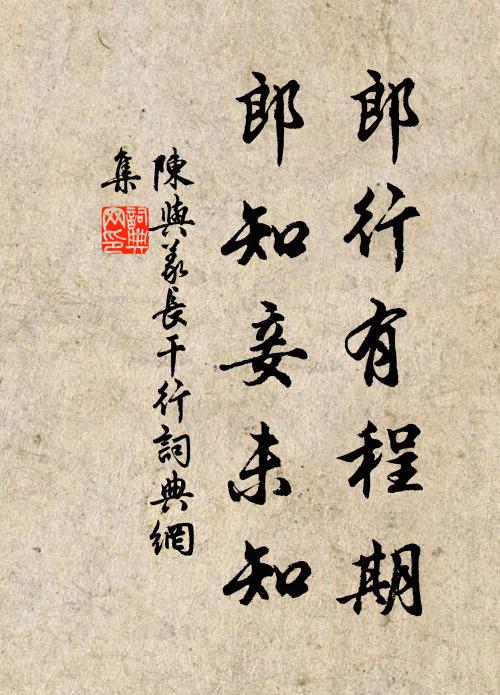 郎行有程期
郎知妾未知
陳與義長干行詞典網
集
詞典
网印